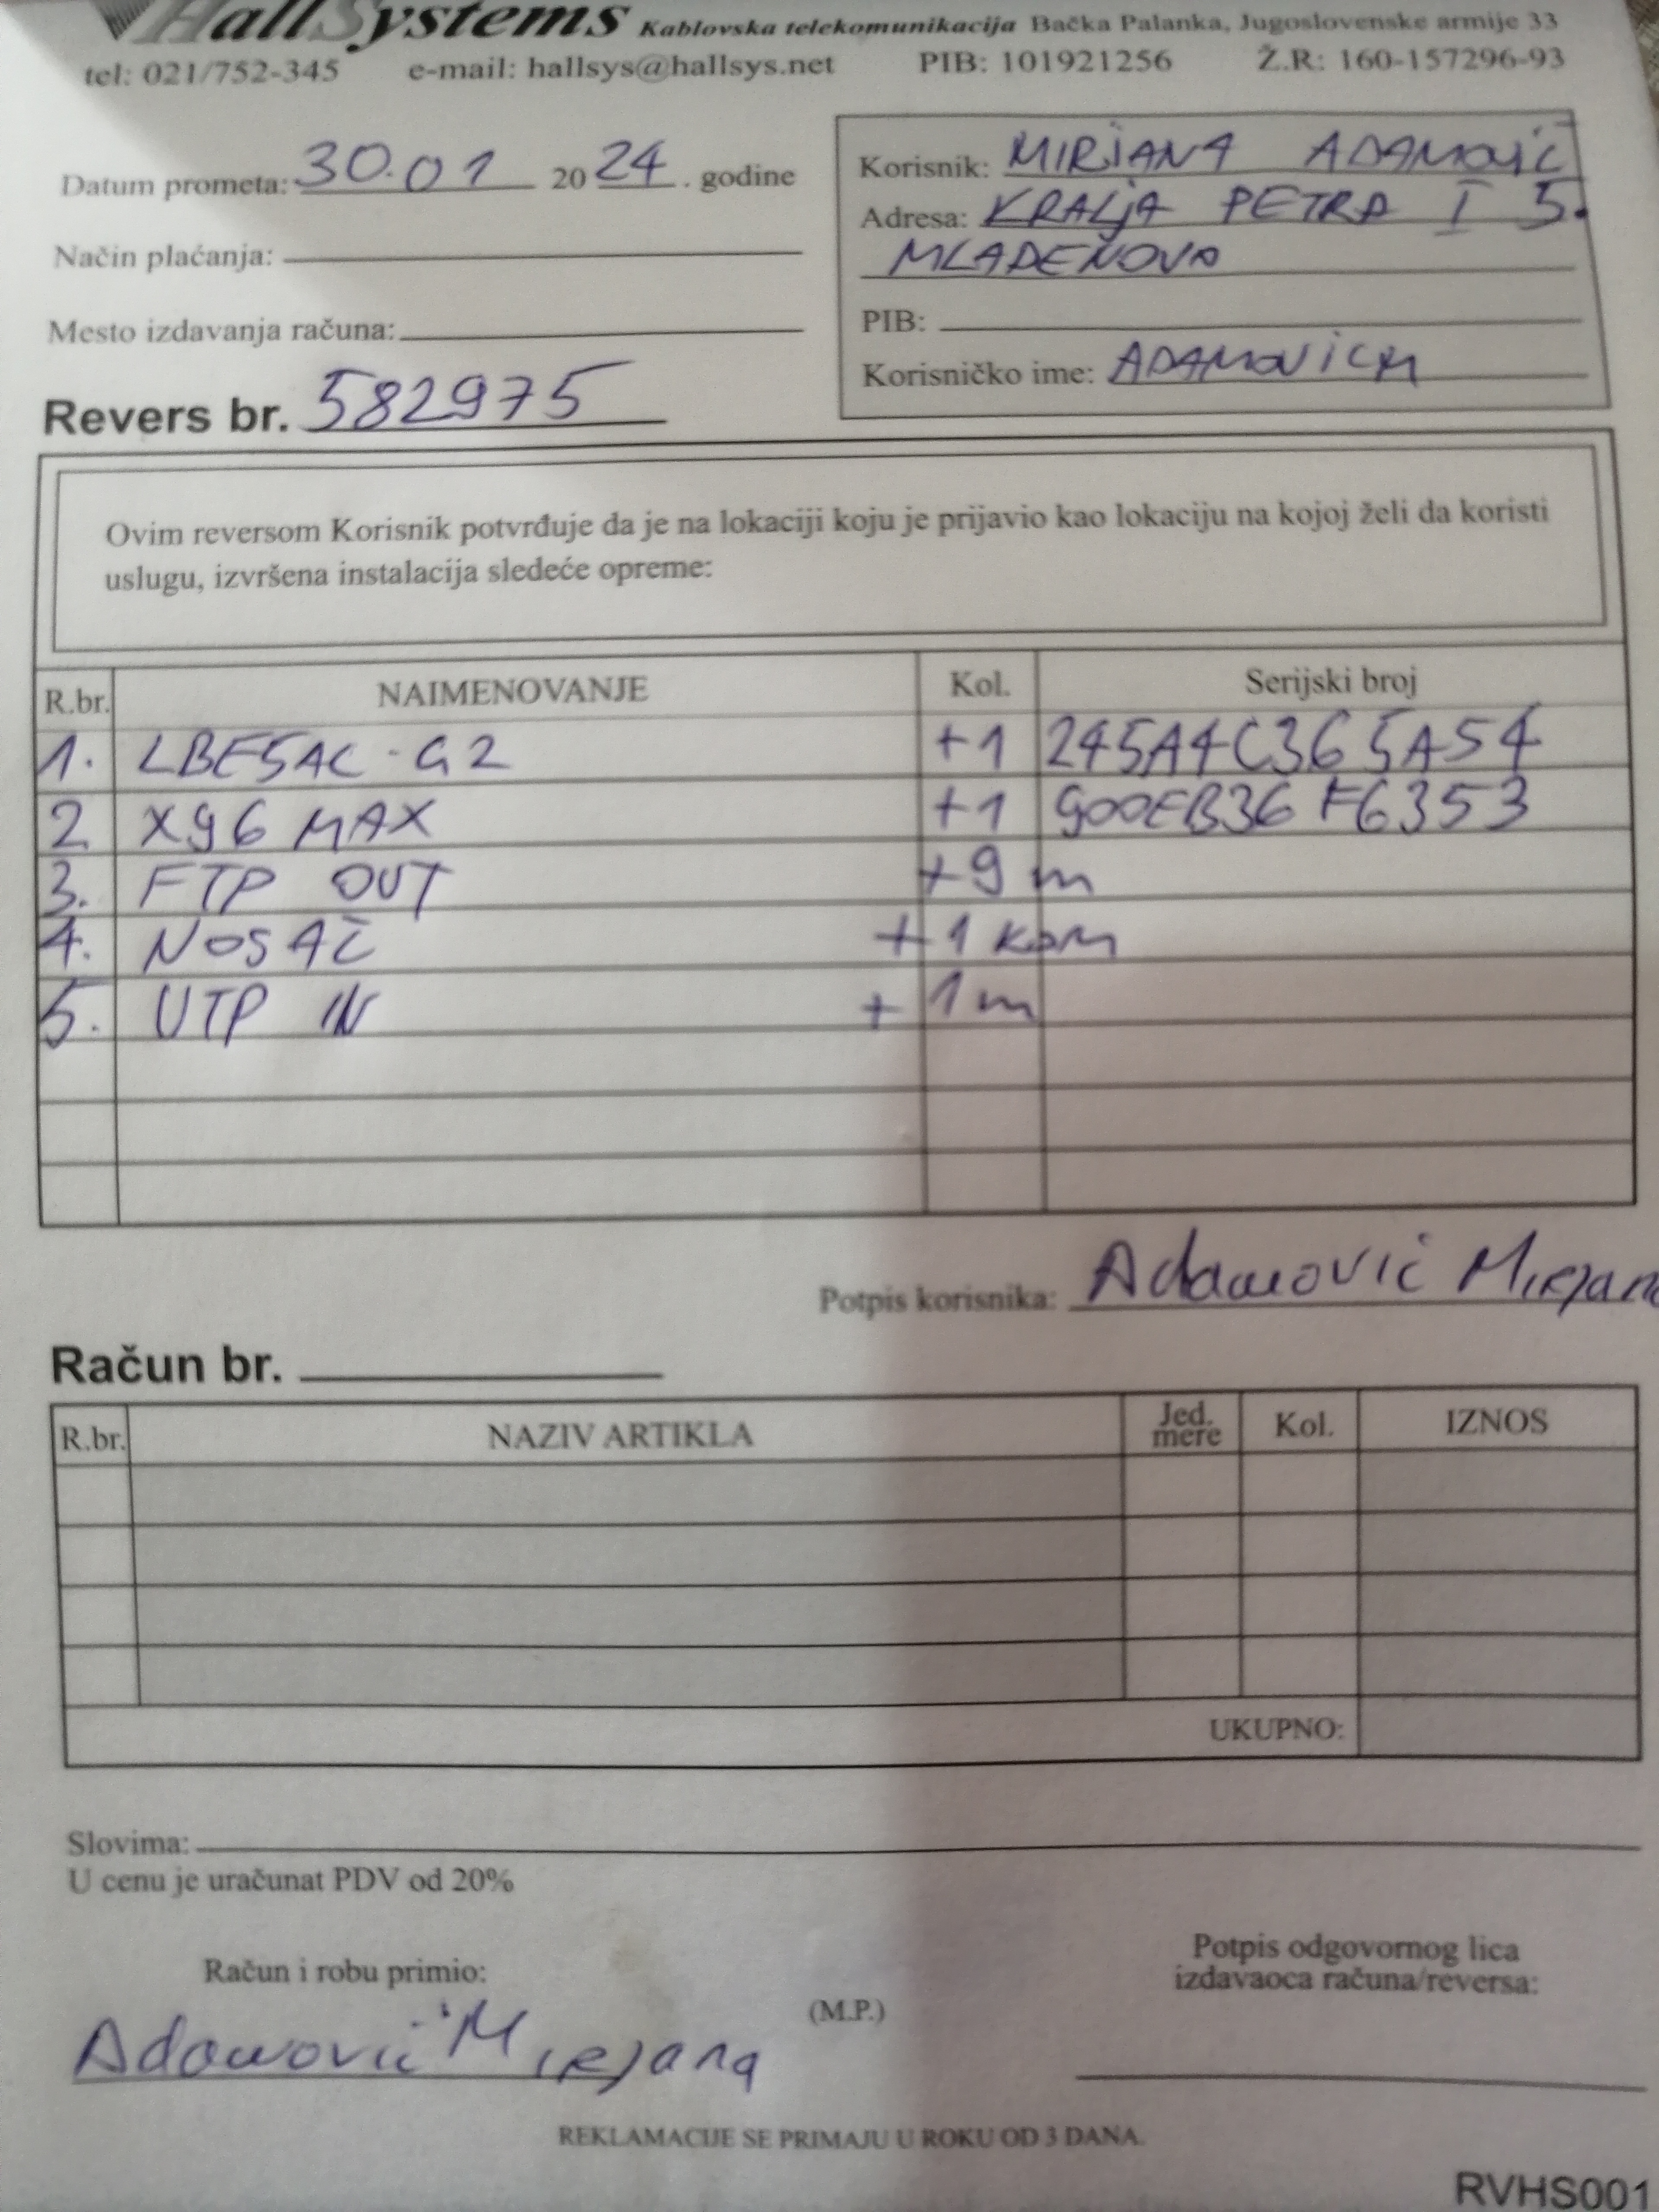 HallSystems Kablovska telekomunikacija Bačka Palanka, Jugoslovenske armije 33
tel: 021/752-345 e-mail: hallsys@hallsys.net PIB: 101921256 Ž.R: 160-157296-93
Datum prometa: 30.01 2024. godine
Način plaćanja:
Mesto izdavanja računa:
Revers br. 582975
Korisnik: MIRJANA ADAMOVIĆ
Adresa: KRALJA PETRA I 5.
MLADENOVO
PIB:
Korisničko ime: ADAMOVICM
Ovim reversom Korisnik potvrđuje da je na lokaciji koju je prijavio kao lokaciju na kojoj želi da koristi
uslugu, izvršena instalacija sledeće opreme:
R.br. NAIMENOVANJE Kol. Serijski broj
1. LBE5AC-G2 +1 245A4C365A54
2 X96 MAX +1 900EB36F6353
3. FTP OUT +9 m
4. NOSAČ +1 kom
5. UTP IN + 1m
Potpis korisnika: Adamović Mirjana
Račun br.
R.br. NAZIV ARTIKLA Jed. mere Kol. IZNOS
UKUPNO:
Slovima:
U cenu je uračunat PDV od 20%
Račun i robu primio:
Adamović Mirjana
(M.P.)
Potpis odgovornog lica
izdavaoca računa/reversa:
REKLAMACIJE SE PRIMAJU U ROKU OD 3 DANA.
RVHS001